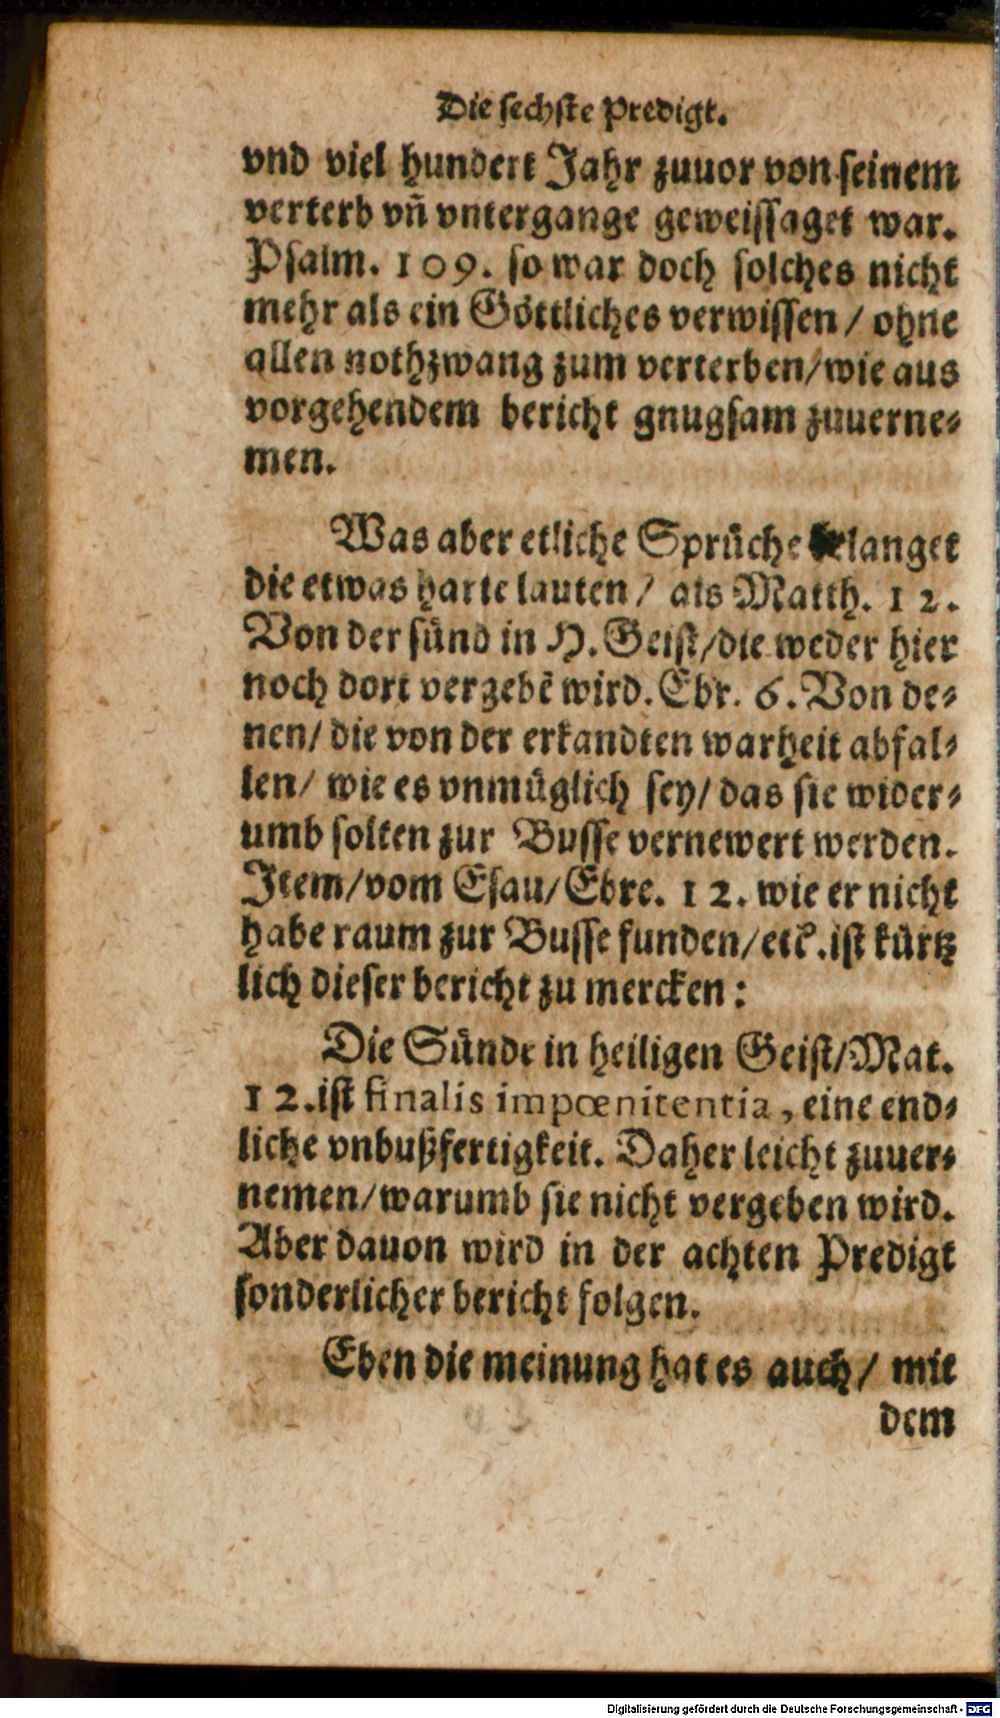 Die sechste Predigt.
vnd viel hundert Jahr zuuor von seinem
verterb vñ vntergange geweissaget war.
Psalm. 109. so war doch solches nicht
mehr als ein Göttliches verwissen / ohne
allen nothzwang zum verterben/wie aus
vorgehendem bericht gnugsam zuuerne-
men.
Was aber etliche Sprüche langet
die etwas harte lauten / als Matth. 12.
Von der sünd in H. Geist/die weder hier
noch dort vergebē wird. Ebr. 6. Von de-
nen/ die von der erkandten warheit abfal-
len/ wie es vnmüglich sey/ das sie wider-
umb solten zur Busse vernewert werden.
Item/vom Esau/Ebre. 12. wie er nicht
habe raum zur Busse funden/etc. ist kürtz
lich dieser bericht zu mercken:
Die Sünde in heiligen Geist/Mat.
12. ist finalis impœnitentia, eine end-
liche vnbußfertigkeit. Daher leicht zuuer-
nemen/warumb sie nicht vergeben wird.
Aber dauon wird in der achten Predigt
sonderlicher bericht folgen.
Eben die meinung hat es auch/ mit
dem
Digitalisierung gefördert durch die Deutsche Forschungsgemeinschaft - DFG